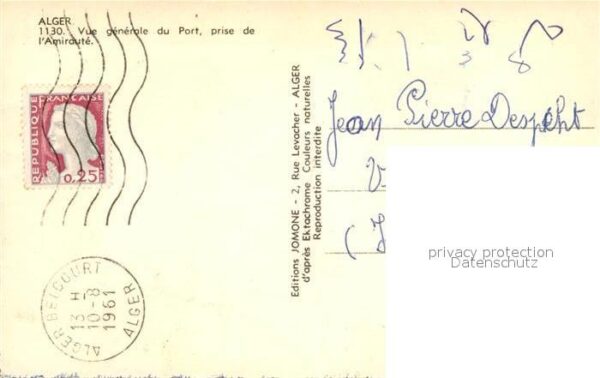 ALGER
1130. Vue générale du Port, prise de
l'Amirauté.
REPUBLIQUE
FRANÇAISE
0,25
Editions JOMONE - 2, Rue Levacher - ALGER
d'après Ektachrome Couleurs naturelles
Reproduction interdite
Jean Pierre
privacy protection
Datenschutz
ALGER BELCOURT
13 H
10-8
1961
ALGER